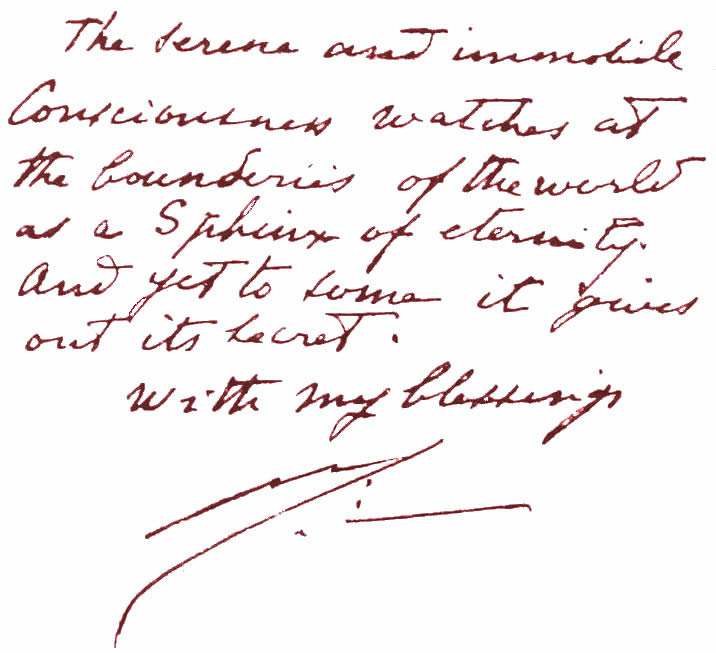 The serene and immobile
Consciousness watches at
the bounderies of the world
as a Sphinx of eternity.
And yet to some it gives
out its secret.
With my blessings